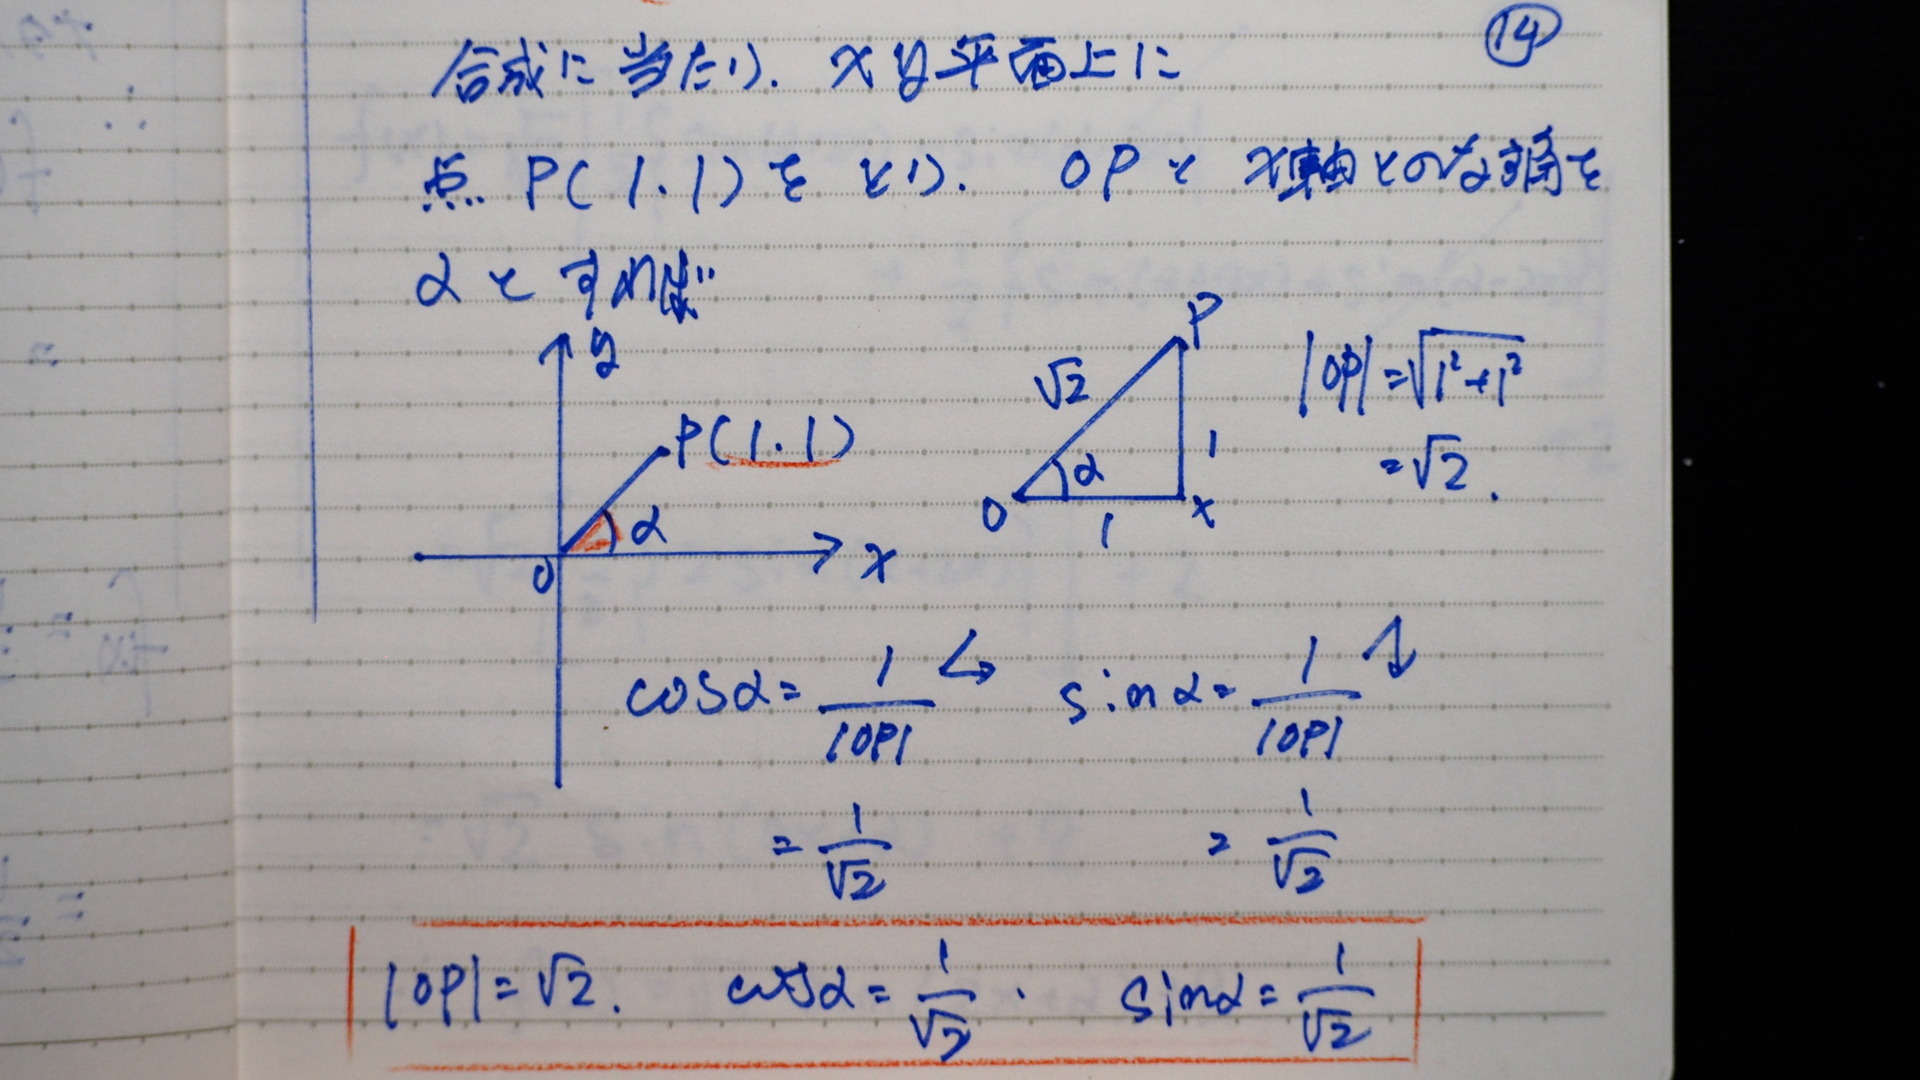 ⑭
合成に当たり、xy平面上に
点P(1.1)をとり、OPとx軸とのなす角を
αとすれば
y
P(1.1)
α
O
x
P
√2
1
α
O
1
x
|OP|=√1²+1²
=√2.
cosα=1/|OP|
sinα=1/|OP|
=1/√2
=1/√2
|OP|=√2. cosα=1/√2. sinα=1/√2